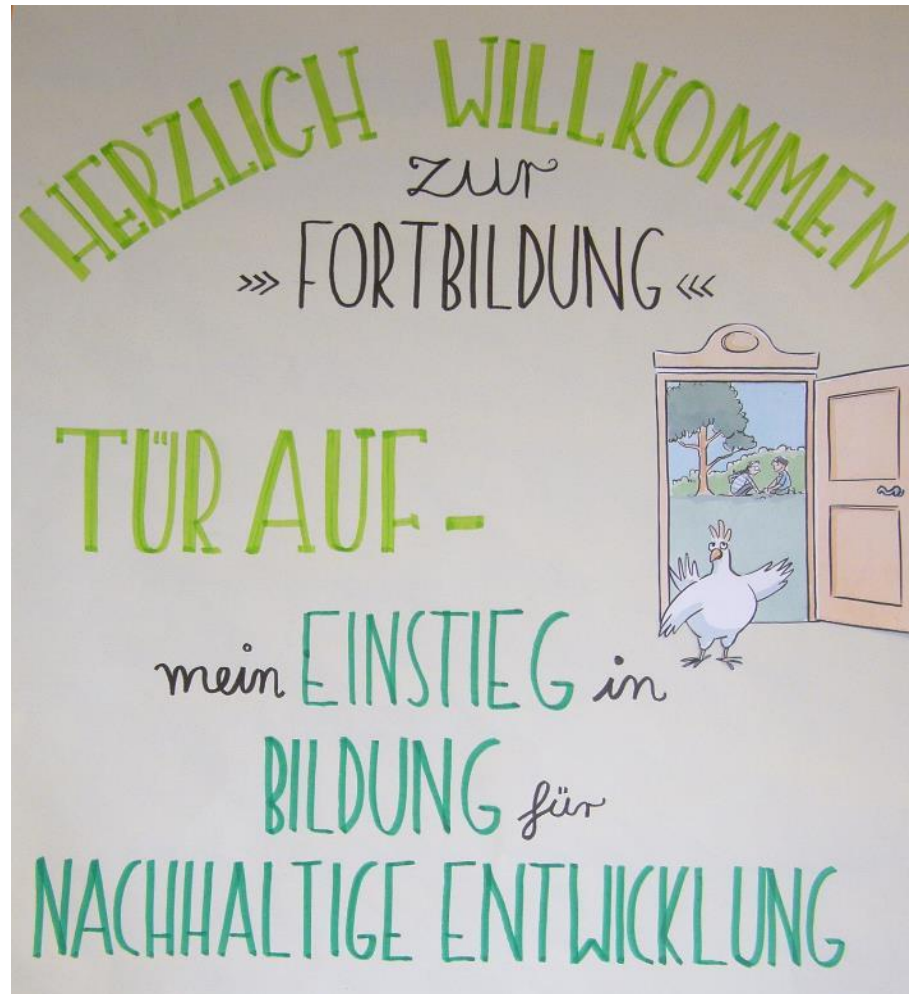 HERZLICH WILLKOMMEN
zur
>>> FORTBILDUNG <<<
TÜR AUF -
mein EINSTIEG in
BILDUNG für
NACHHALTIGE ENTWICKLUNG